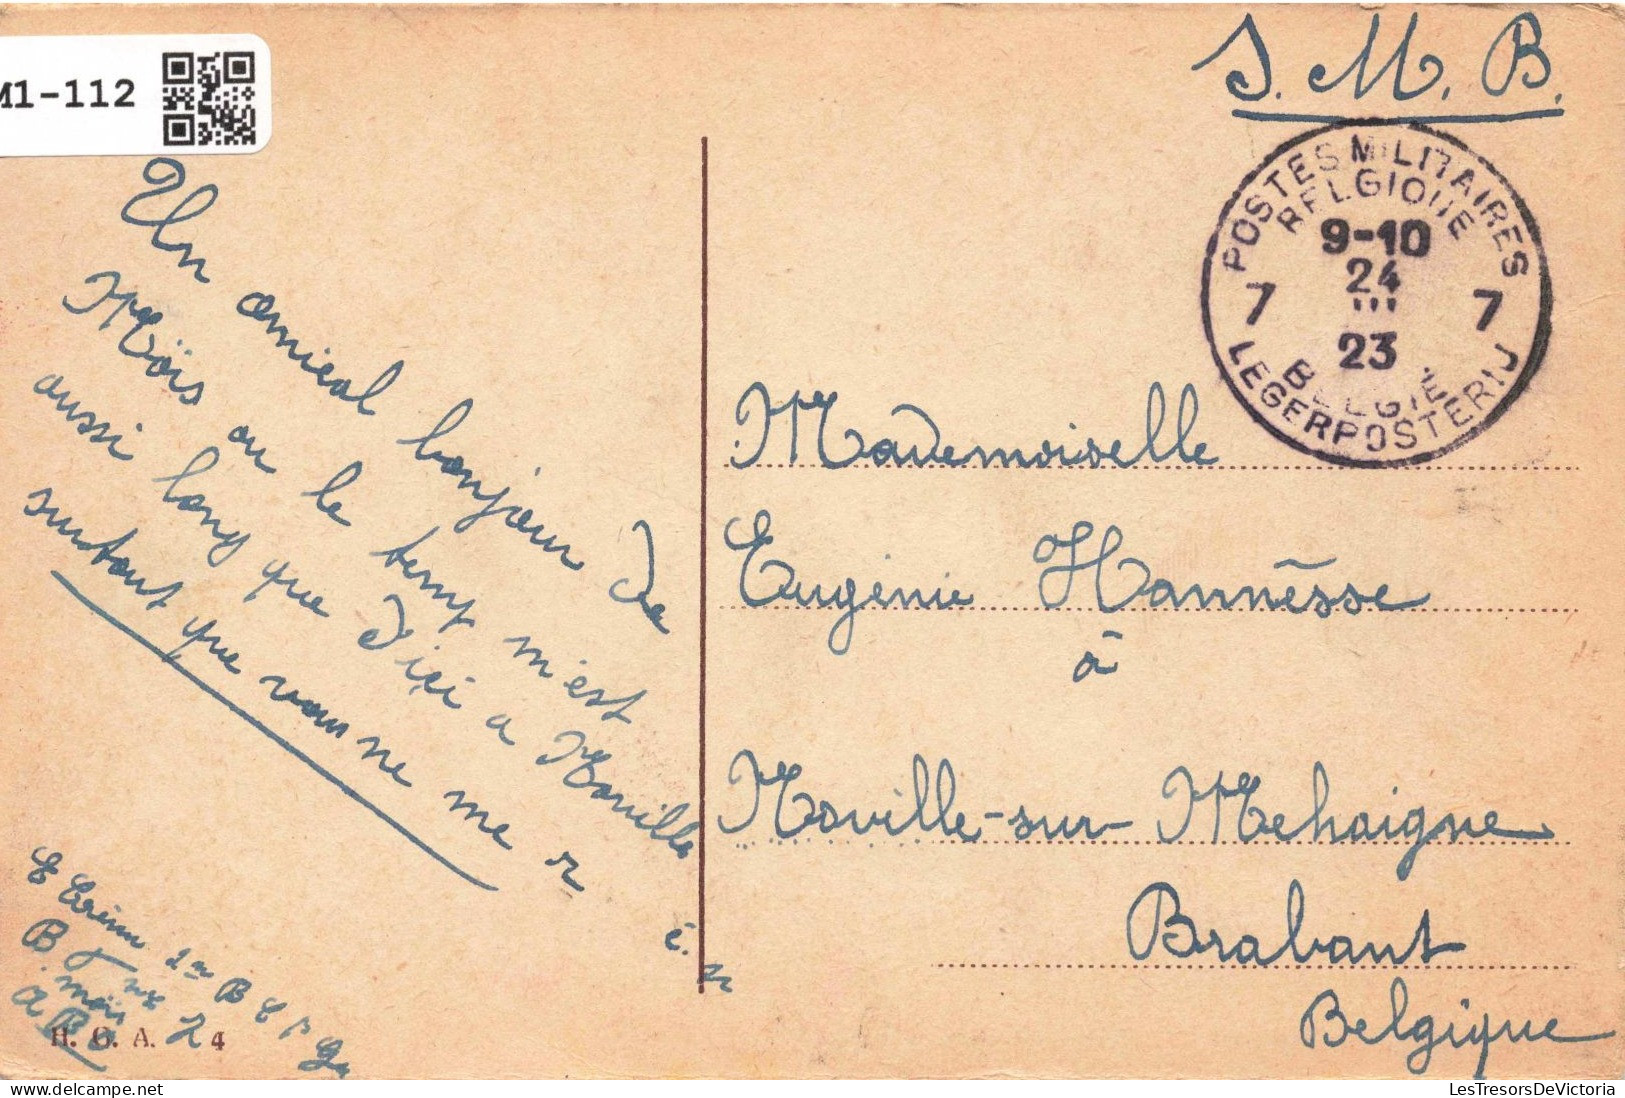 M1-112
S. M. B.
POSTES MILITAIRES
BELGIQUE
9-10
24
III
23
7 7
BELGIË
LEGERPOSTERIJ
Un amical bonjour de
Möis ou le temp m'est
aussi long que d'ici a Noville
surtout que vous ne me
é.
Mademoiselle
Eugénie Hannèsse
à
Noville-sur-Mehaigne
Brabant
Belgique
H. G. A. 4
LesTresorsDeVictoria